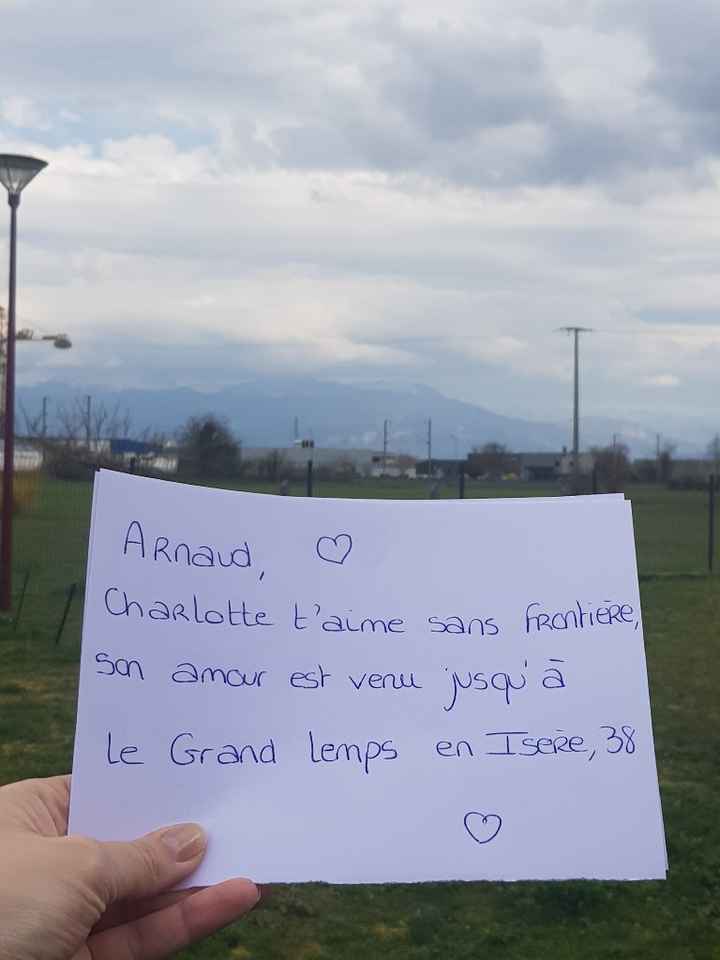 Arnaud, ♡
Charlotte t'aime sans frontière,
son amour est venu jusqu'à
le Grand lemps en Isère, 38
♡